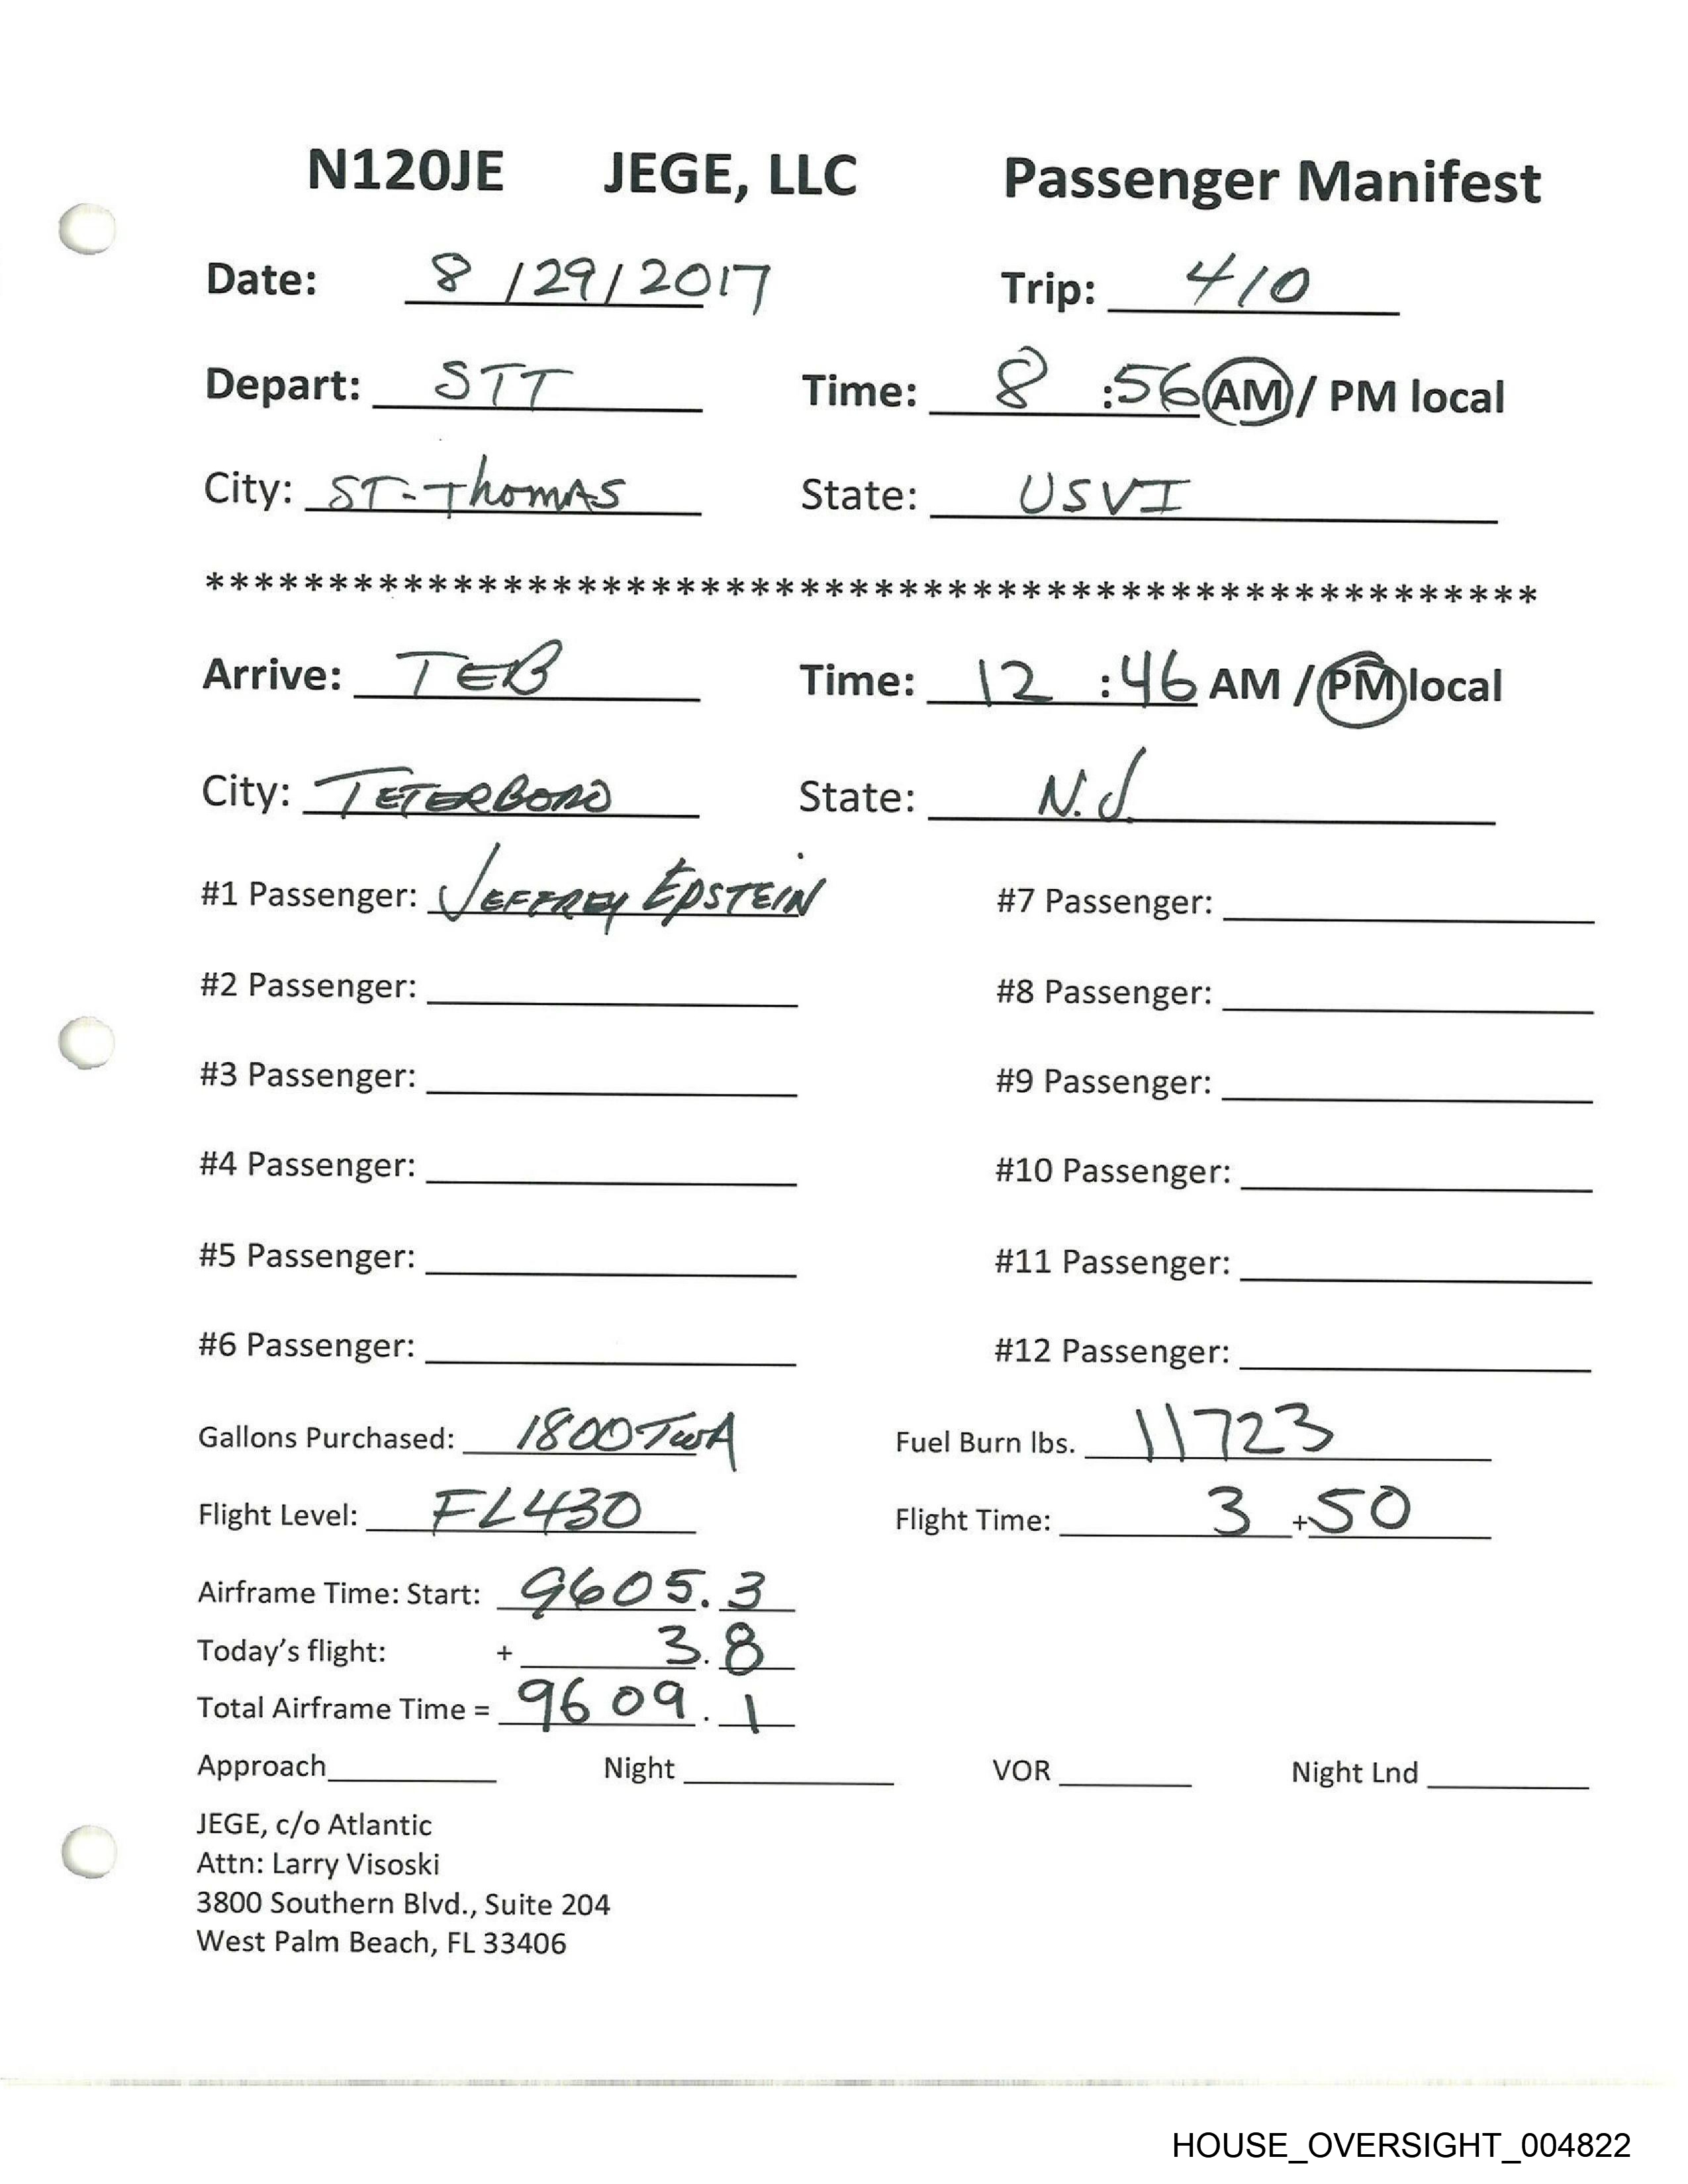 N120JE JEGE, LLC Passenger Manifest
Date: 8 /29/2017 Trip: 410
Depart: STT Time: 8 :56 AM / PM local
City: ST-Thomas State: USVI
******************************************************
Arrive: TEB Time: 12 :46 AM / PM local
City: TETERBORO State: N.J.
#1 Passenger: JEFFREY EPSTEIN #7 Passenger:
#2 Passenger: #8 Passenger:
#3 Passenger: #9 Passenger:
#4 Passenger: #10 Passenger:
#5 Passenger: #11 Passenger:
#6 Passenger: #12 Passenger:
Gallons Purchased: 1800 TWA Fuel Burn lbs. 11723
Flight Level: FL430 Flight Time: 3 +50
Airframe Time: Start: 9605.3
Today's flight: + 3.8
Total Airframe Time = 9609.1
Approach Night VOR Night Lnd
JEGE, c/o Atlantic
Attn: Larry Visoski
3800 Southern Blvd., Suite 204
West Palm Beach, FL 33406
HOUSE_OVERSIGHT_004822